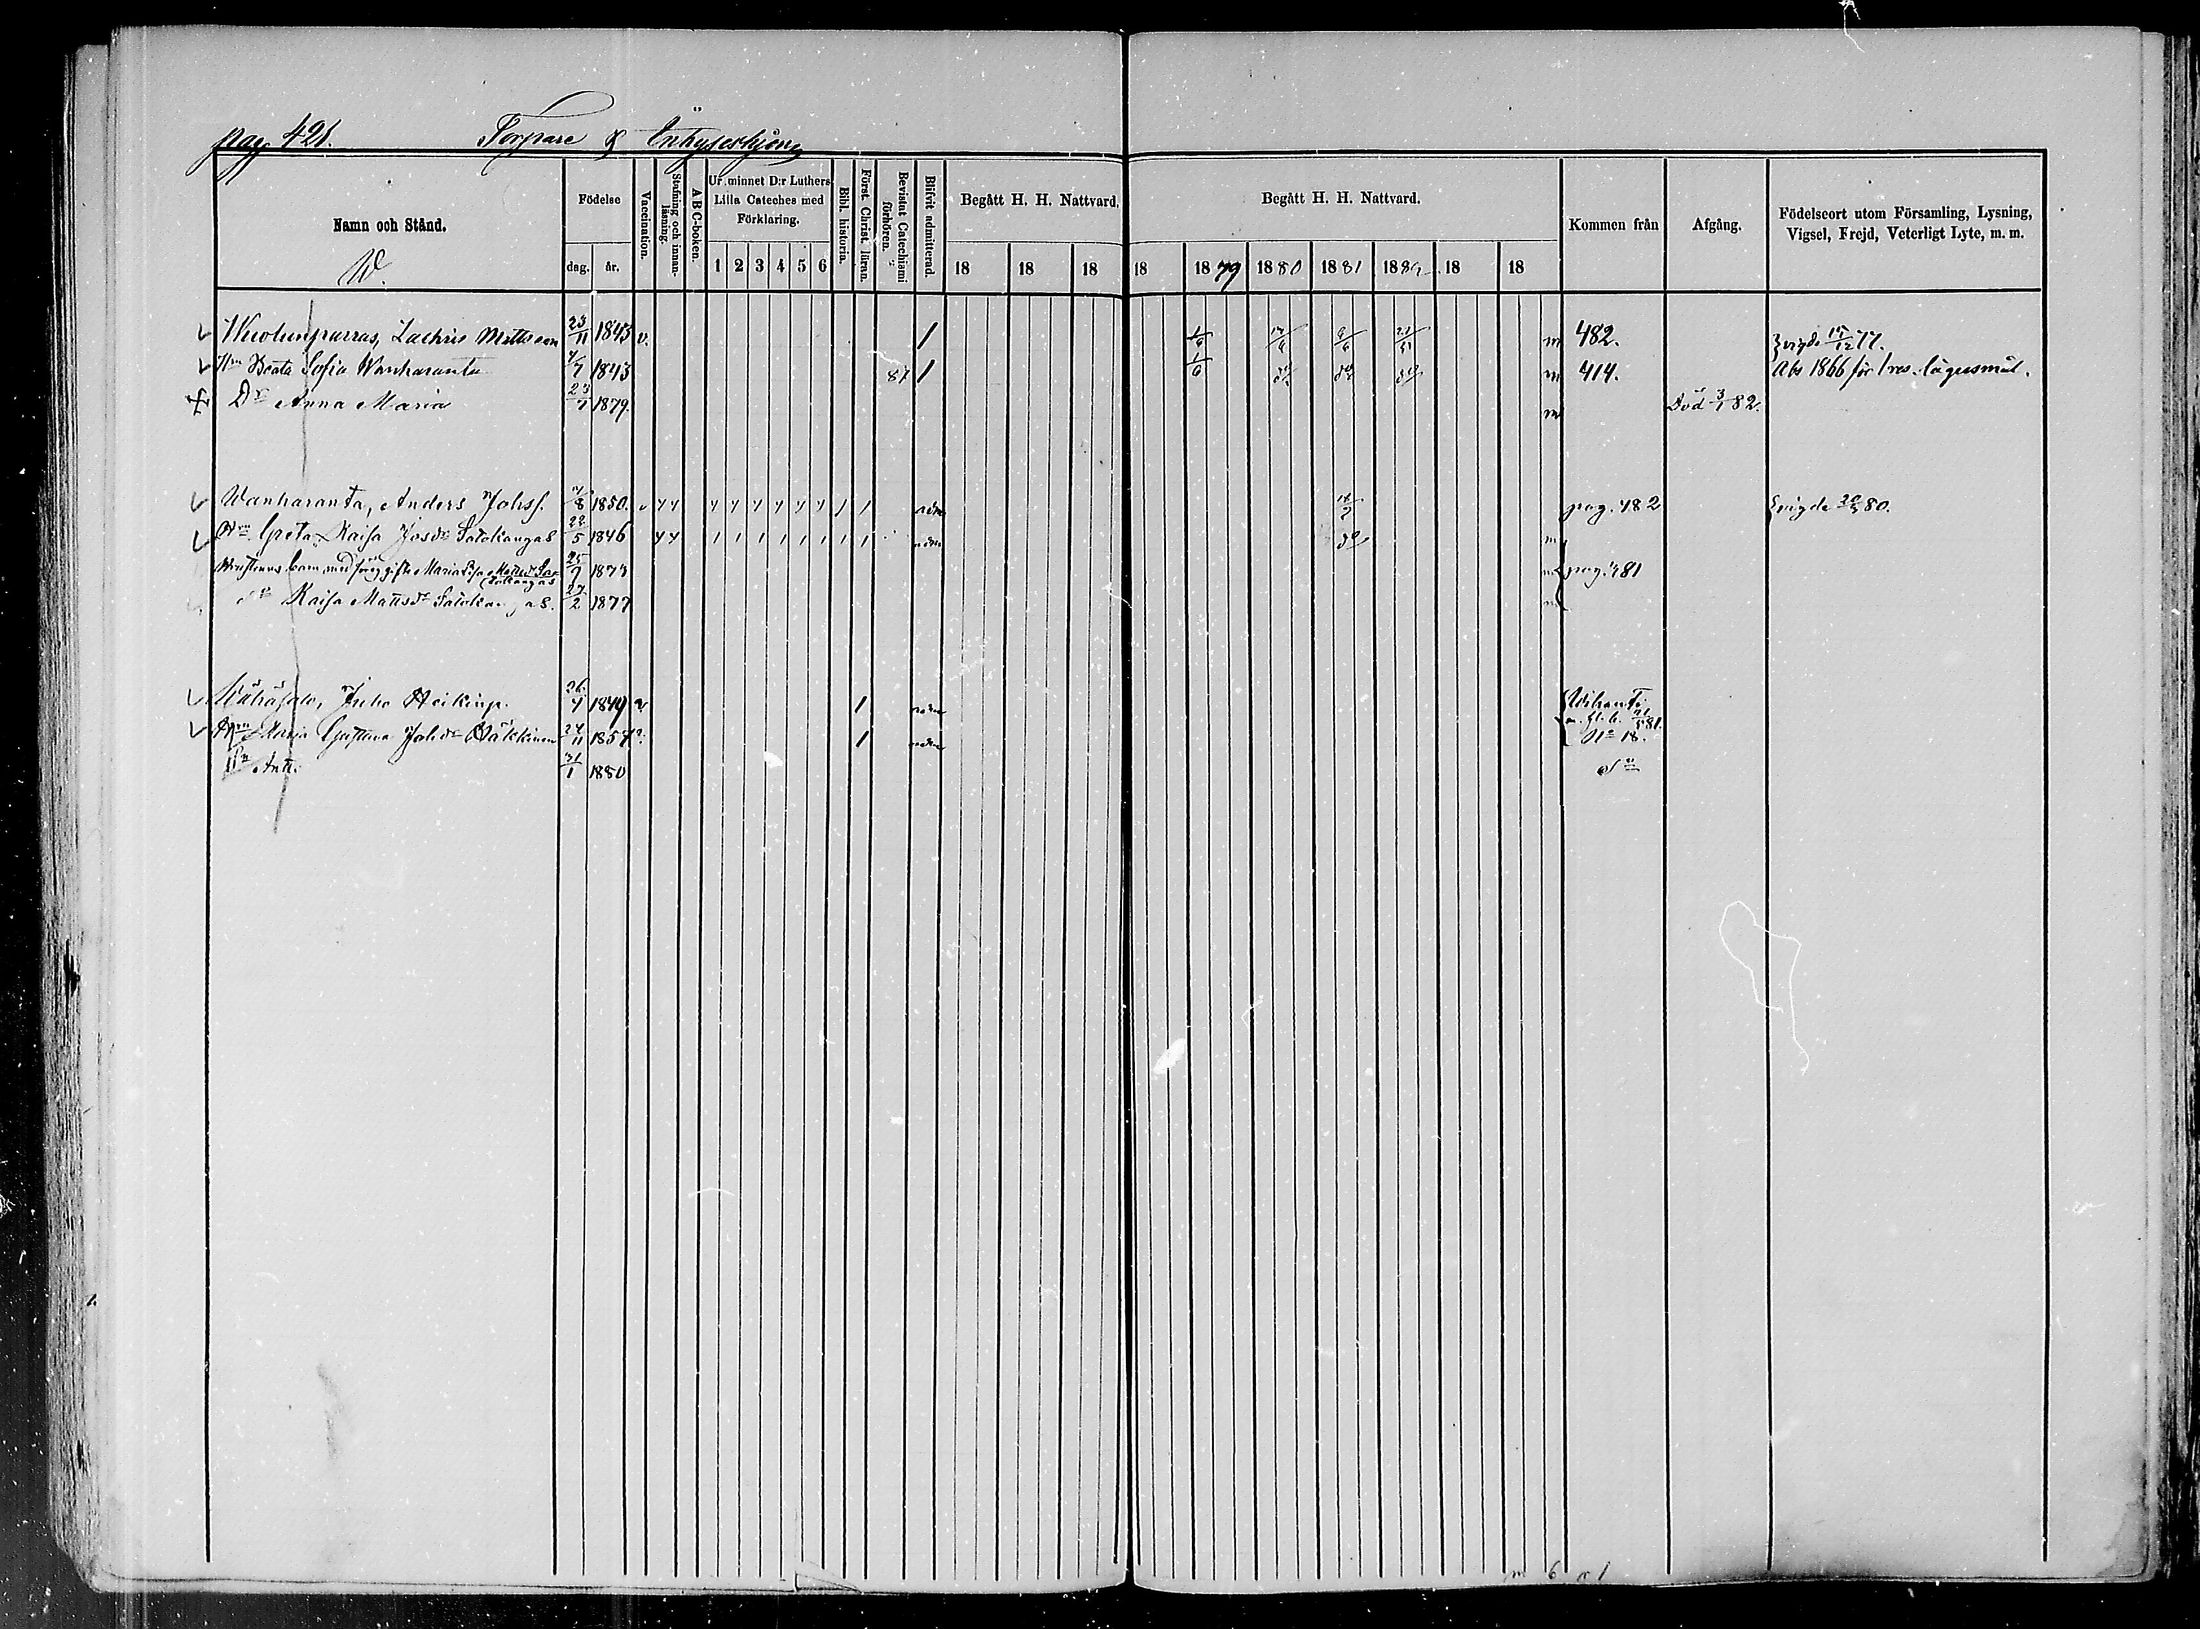 pag. 421. Torpare & Inhyseshjong
Namn och Stånd.
W.
Födelse
dag. år.
Vaccination.
Stafning och innanläsning.
A B C-boken.
Ur minnet D:r Luthers Lilla Cateches med Förklaring.
1 2 3 4 5 6
Bibl. historia.
Först. Christ. läran.
Bevistat Catechismi förhören.
Blifvit admitterad.
Begått H. H. Nattvard.
18 18 18
Begått H. H. Nattvard.
18 1879 1880 1881 1882 18 18
Kommen från
Afgång.
Födelseort utom Församling, Lysning, Vigsel, Frejd, Veterligt Lyte, m. m.
Zachris Mattsson 23/11 1843 v. 1 1/6 6/6 m 482. vigde 77.
Hm Beata Sofia Wanharanta 1843 87 1 1/6 do do do m 414. Abs 1866 för 1 res. lägersmål.
Dr Anna Maria 23/7 1879. m Död 3/1 82.
Wanharanta, Anders Johss. 1850. pag. 482 vigde 80.
Hm Greta Kaisa Josdr Salokangas 22/5 1846 do m
barn med Maria Lisa Mattsdr Salokangas 25/9 1873 m pag. 481
dr Kaisa Mattsdr Salokangas. 27/2 1877 m
Juho Heikinp. 26/4 1849 v 1 Wihanti 81. No 18.
Hm Maria Gustava Johdr Häkkinen 24/11 1857 v. 1
Antti. 31/1 1880
m 6